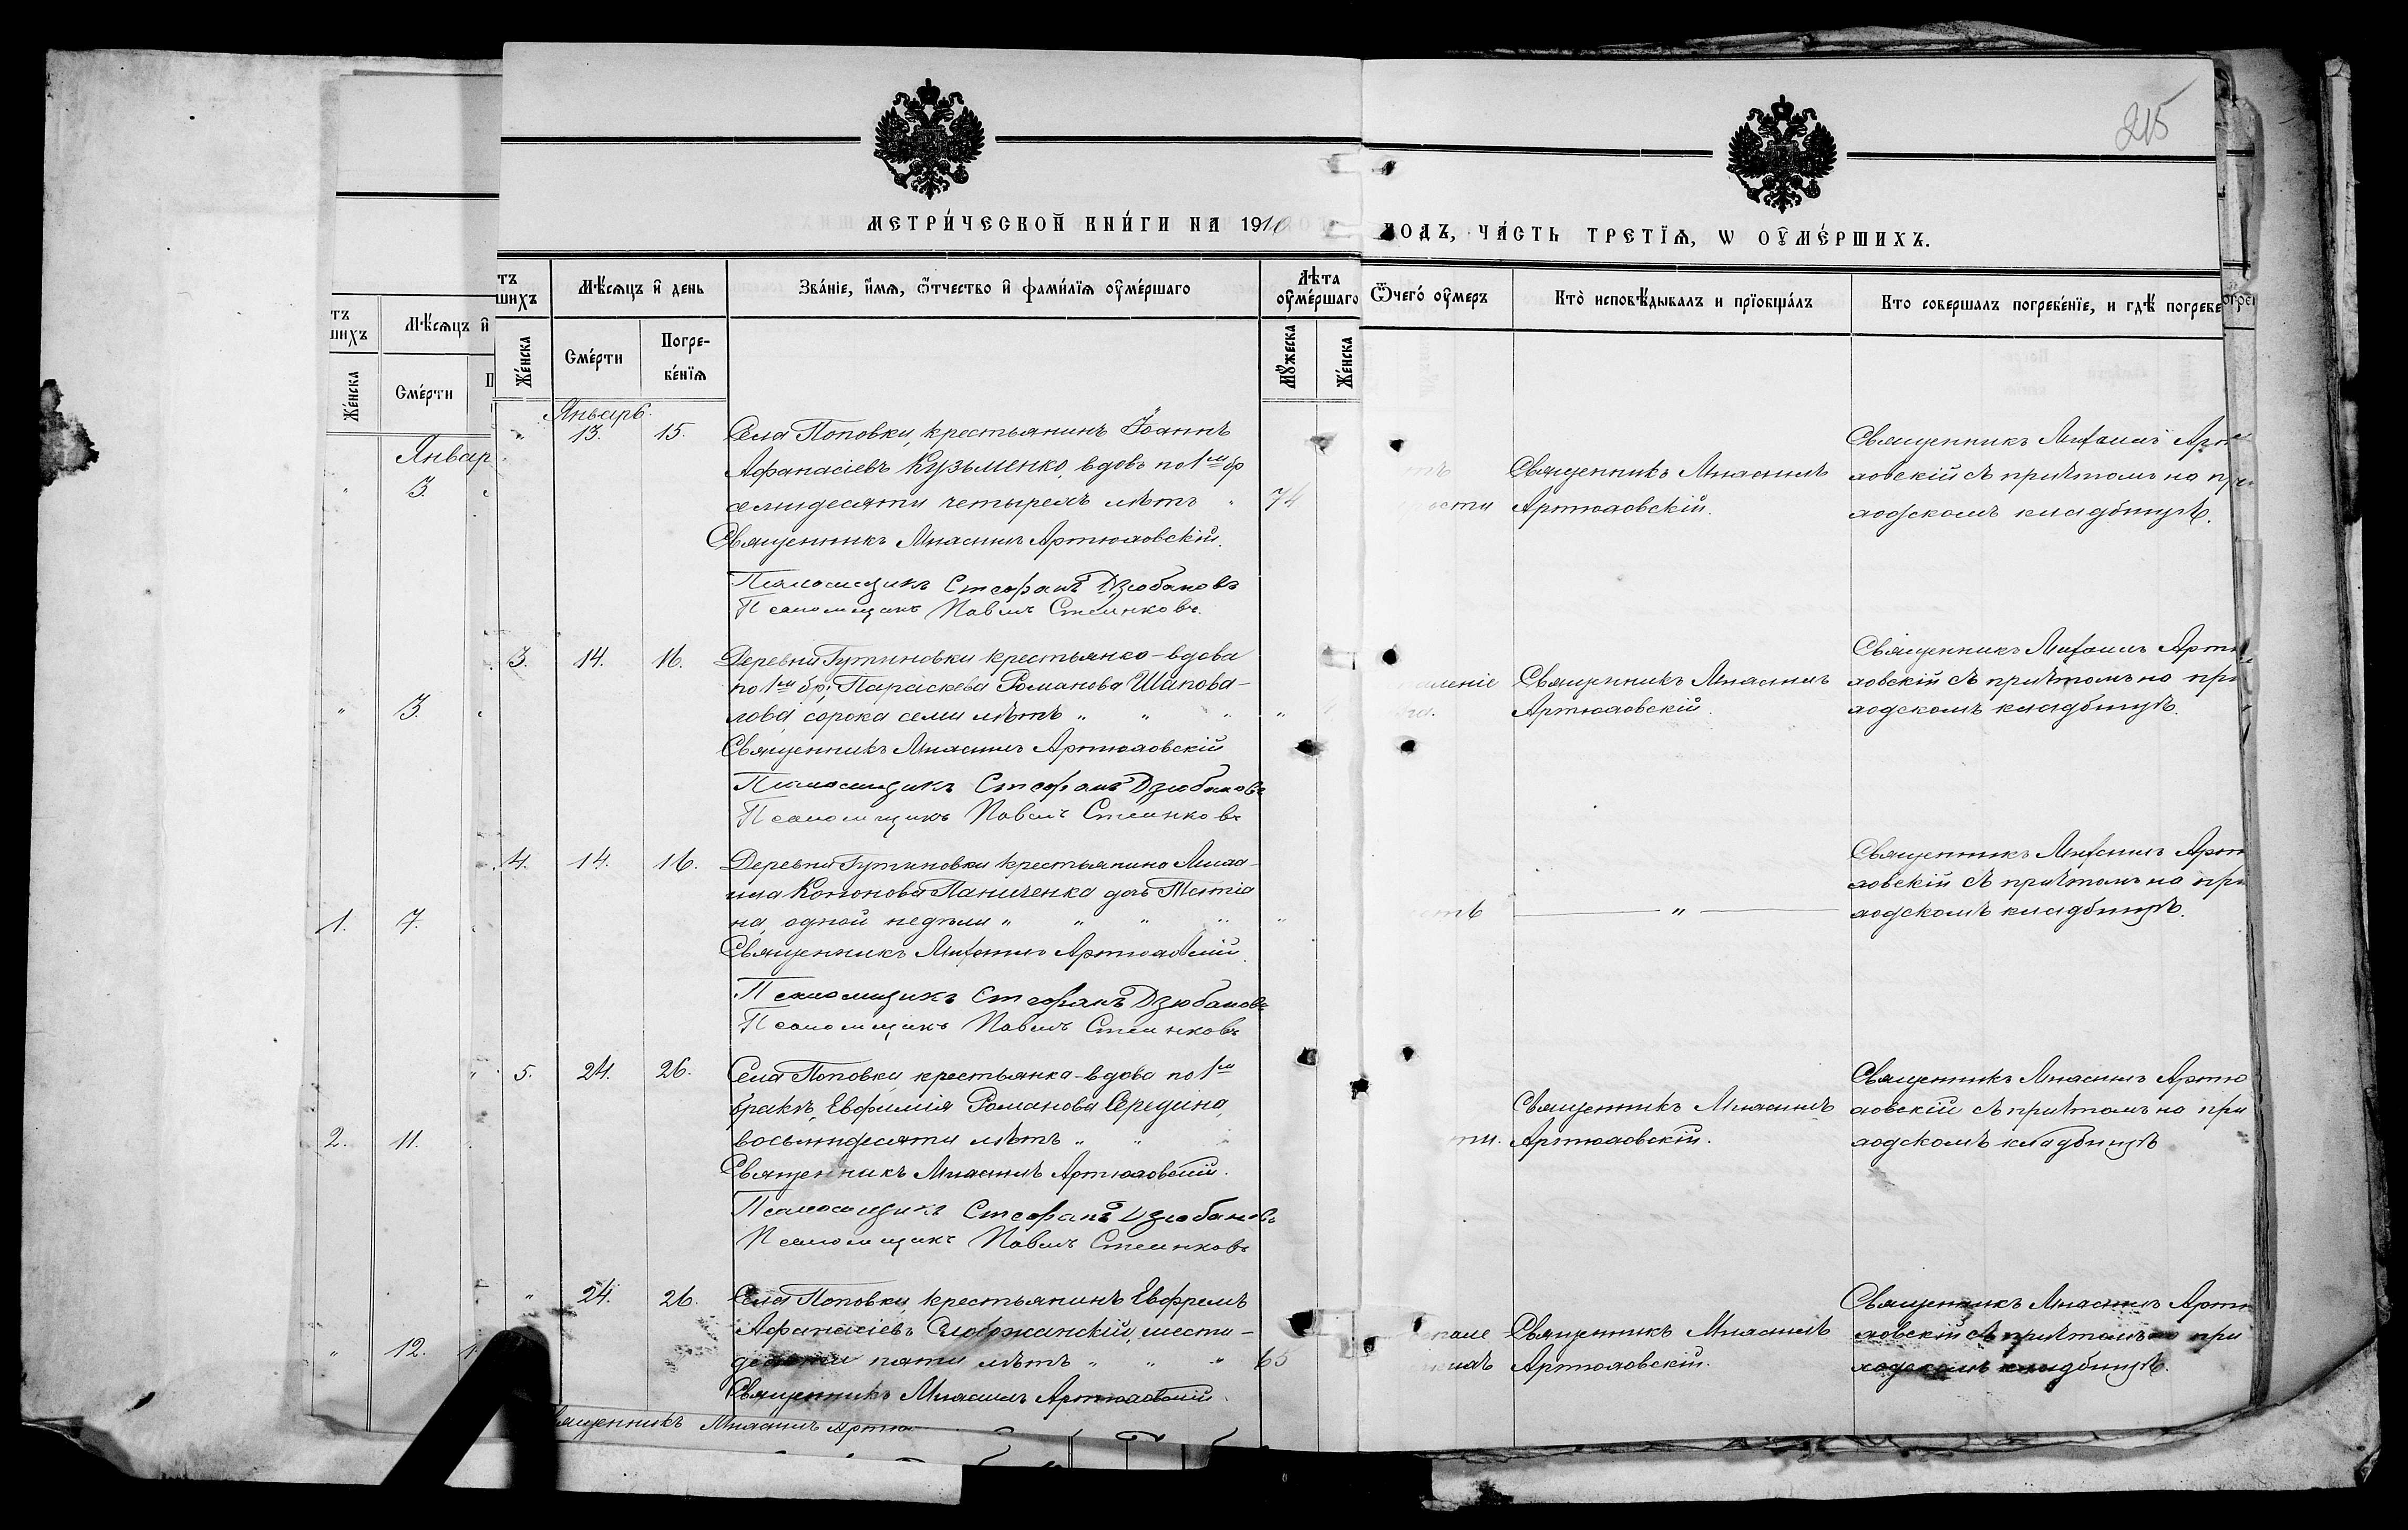 215
МЕТРИ́ЧЕСКОЙ КНИ́ГИ НА 1910
ГОДЪ, ЧА́СТЬ ТРЕТІѦ, Ѡ ОУМЕ́РШИХЪ.
тъ
шихъ
Мѣсяцъ и день
Зва́ніе, имя, ѿтчество и фами́лія оуме́ршаго
Лѣта
оуме́ршаго
Ѿчего́ оумеръ
Кто̀ исповѣдывалъ и прїобща́лъ
Кто совершалъ погребе́ніе, и гдѣ погребе
Же́нска
Сме́рти
Погре-
бе́нїя
Мужеска
Же́нска
тъ
шихъ
Мѣсяцъ и
Же́нска
Сме́рти
Январь.
" 13. 15. Села Поповки, крестьянинъ Іоаннъ
Афанасіевъ Кузьменко, вдовъ по 1мъ бр
семидесяти четырехъ лѣтъ " 74
Священникъ Михаилъ Артюховскій.
Псаломщикъ Стефанъ Дзюбановъ
Псаломщикъ Павелъ
сти
Священникъ Михаилъ
Артюховскій.
Священникъ Михаилъ Артю
ховскій съ причтомъ на при
ходскомъ кладбищѣ.
3. 14. 16. Деревни Гутиновки крестьянка-вдова
по 1мъ бр; Параскева Романова Шапова-
лова, сорока семи лѣтъ " " " "
Священникъ Михаилъ Артюховскій
Псаломщикъ Стефанъ Дзюбановъ
Псаломщикъ Павелъ
аленіе
Священникъ Михаилъ
Артюховскій.
Священникъ Михаилъ Артю
ховскій съ причтомъ на при
ходскомъ кладбищѣ.
4. 14. 16. Деревни Гутиновки крестьянина Миха-
ила Кононова Паниченка дочь Татіа
на, одной недѣли " " " " "
Священникъ Михаилъ Артюховскій
Псаломщикъ Стефанъ Дзюбановъ
Псаломщикъ Павелъ
сть
"
Священникъ Михаилъ Артю
ховскій съ причтомъ на при
ходскомъ кладбищѣ.
5. 24. 26. Села Поповки, крестьянка-вдова по 1мъ
бракѣ, Евфимія Романова Середина,
восьмидесяти лѣтъ " " "
Священникъ Михаилъ Артюховскій.
Псаломщикъ Стефанъ Дзюбановъ
Псаломщикъ Павелъ
ти.
Священникъ Михаилъ
Артюховскій.
Священникъ Михаилъ Артю
ховскій съ причтомъ на при
ходскомъ кладбищѣ
" 24. 26. Села Поповки, крестьянинъ Евфремъ
Афанасіевъ Слобожанскій, шести-
десяти пяти лѣтъ " " " 65
Священникъ Михаилъ Артюховскій.
Священникъ Михаилъ
Артюховскій.
Священникъ Михаилъ Артю
ховскій съ причтомъ на при
ходскомъ кладбищѣ.
вященникъ Михаилъ Артю
Январ
" 3.
" 3.
1. 7.
2. 11.
" 12. 1